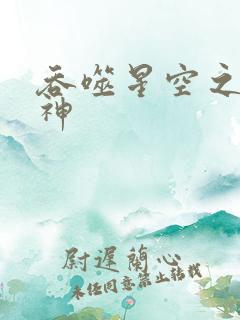 吞噬星空之
神
尉遲蘭心
未经同意禁止转载